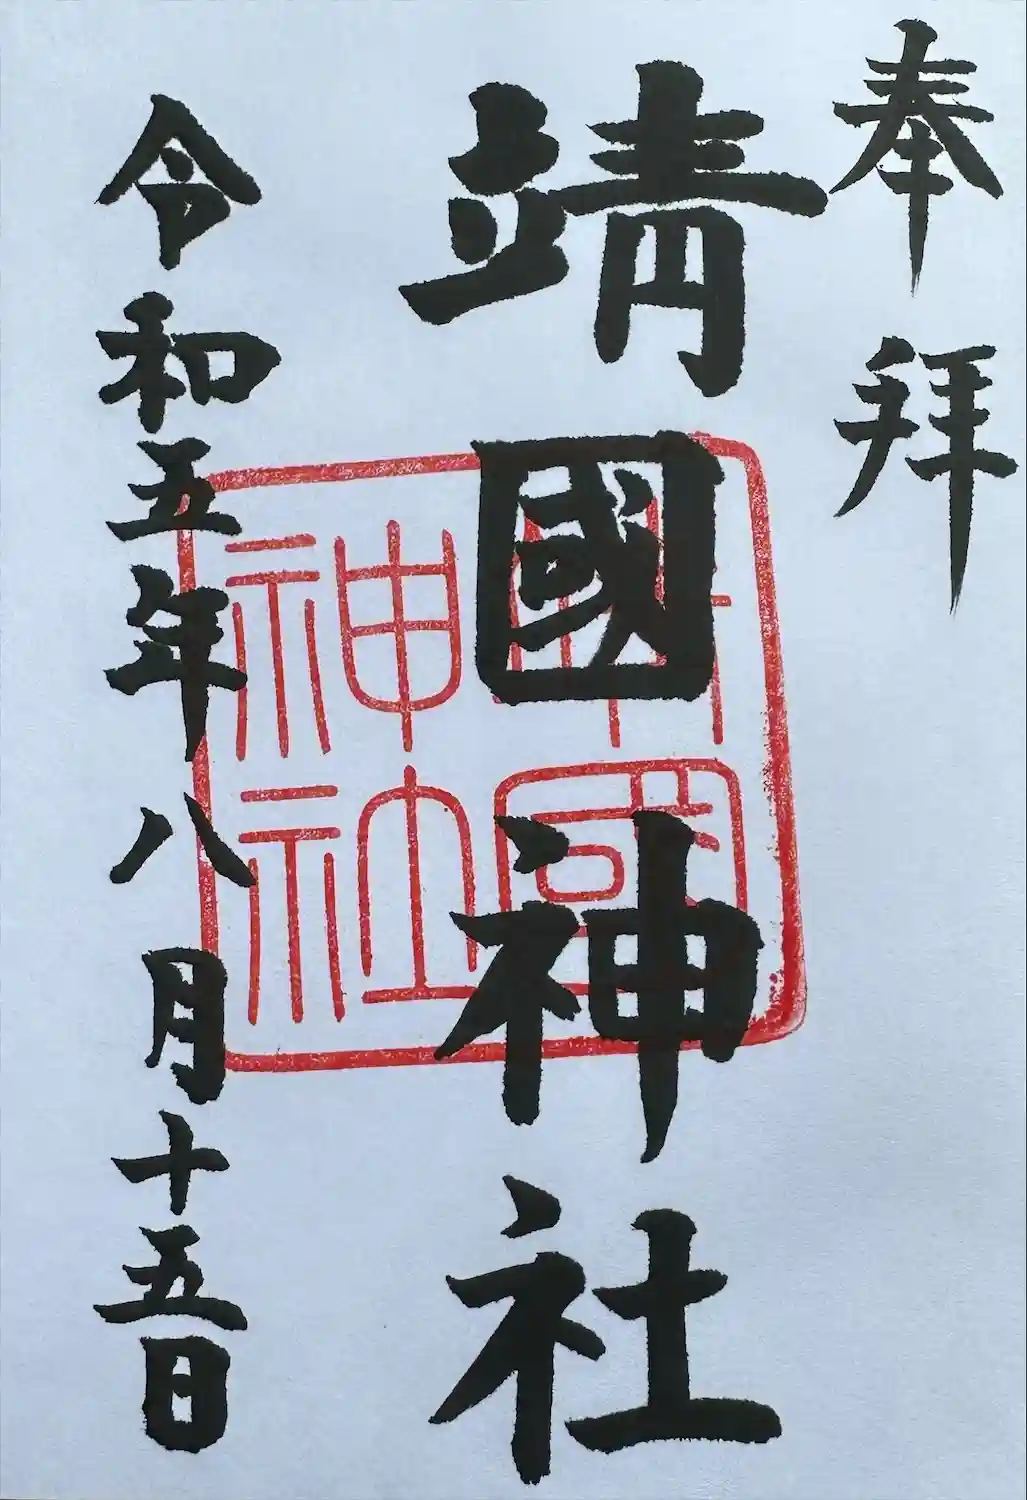 奉拜
靖國神社
令和五年八月十五日
靖國神社